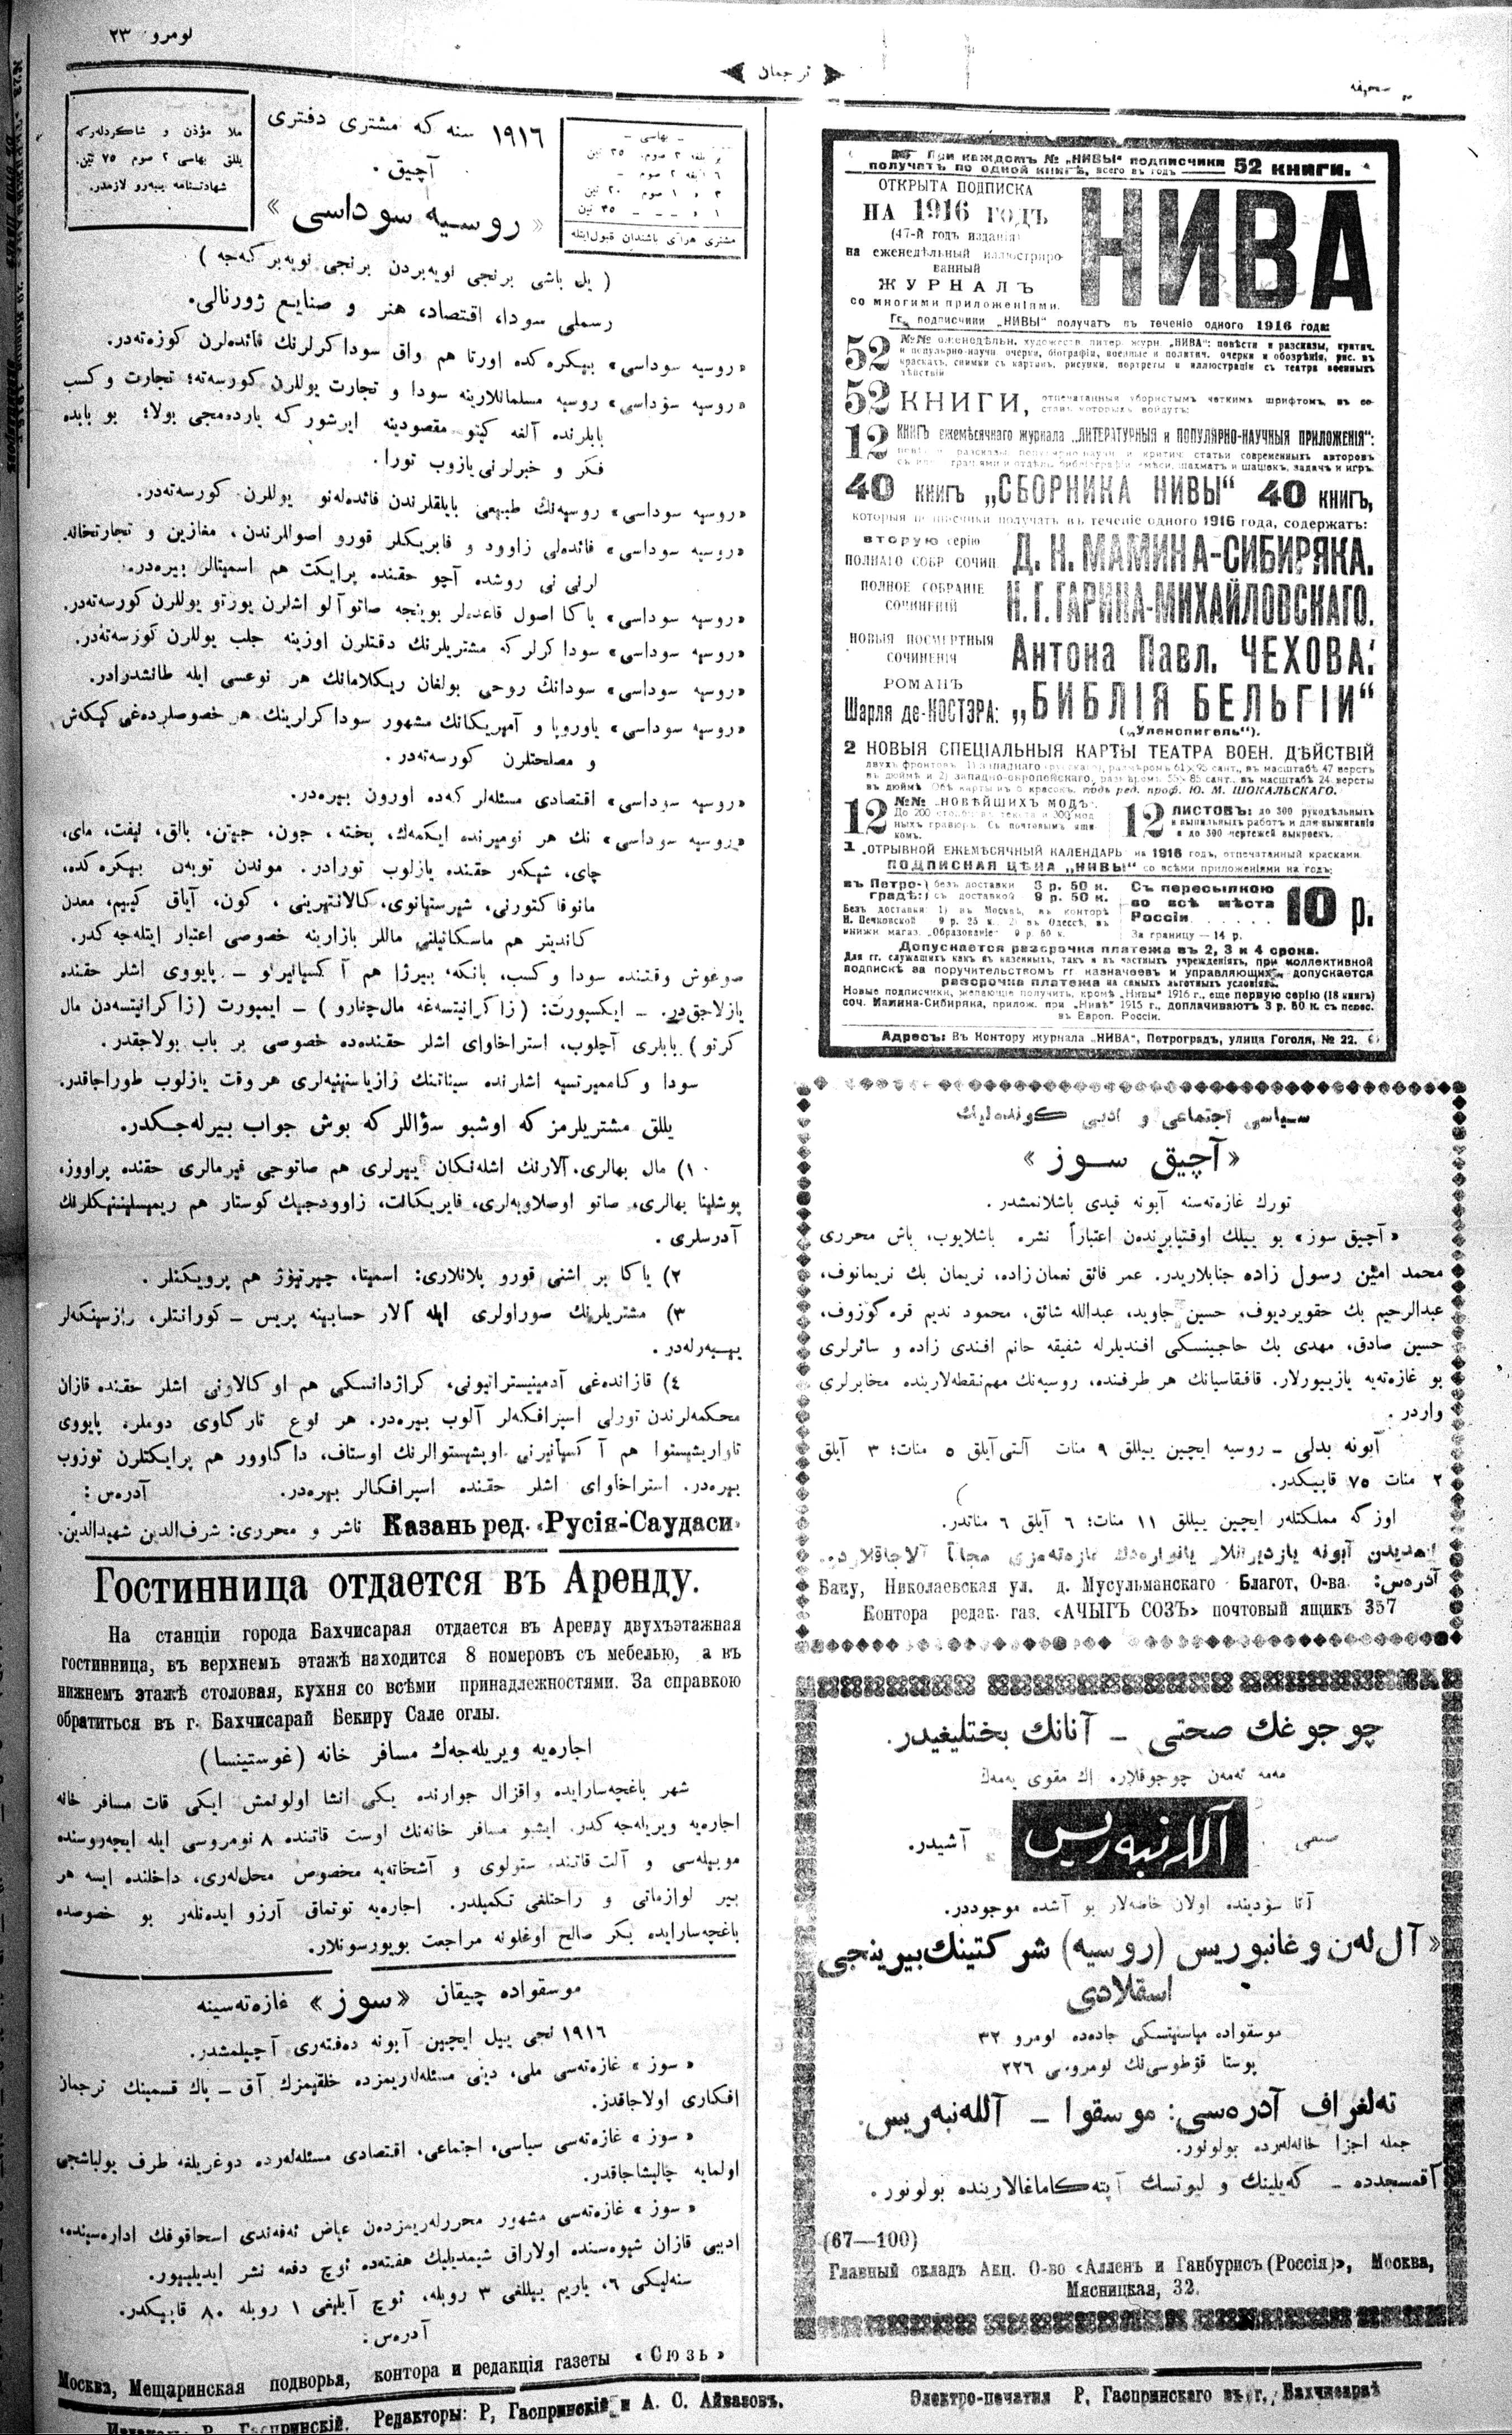 نومرو ٢٣
ترجمان
ملا مؤذن و شاكردلره‌كه
يللق بهاسى ٢ صوم ٧٥ تين.
شهادتنامه يبه‌رو لازمدر.
١٩١٦ سنه كه مشترى دفترى
آچيق.
«روسيه سوداسى»
– بهاسى –
مشترى هر آى باشندان قبول ايتله
( يل باشى برنجى نويه‌بردن برنجى نويه‌بر كه‌جه )
رسملى سودا، اقتصاد، هنر و صنايع ژورنالى.
«روسيه سوداسى» بيكره‌كده اورتا هم واق سوداكرلرنك فائده‌لرن كوزه‌ته‌در.
«روسيه سوداسى» روسيه مسلمانلارينه سودا و تجارت يوللرن كورسه‌ته؛ تجارت و كسب
بابلرنده آلغه كيتو مقصودينه ايرشور كه يارده‌مجى بولا؛ بو بابده
فكر و خبرلرنى يازوب تورا.
«روسيه سوداسى» روسيه‌نك طبيعى بايلقلرندن فائده‌له‌نو يوللرن كورسه‌ته‌در.
«روسيه سوداسى» فائده‌لى زاوود و فابريكلر قورو اصوللرندن، مغازين و تجارتخانه
لرنى نى روشده آچو حقنده پرايكت هم اسميتالر بيره‌در.
«روسيه سوداسى» ياكا اصول قاعده‌لر بوينجه صاتو آلو اشلرن يورتو يوللرن كورسه‌ته‌در.
«روسيه سوداسى» سوداكرلر كه مشتريلرنك دقتلرن اوزينه جلب يوللرن كورسه‌ته‌در.
«روسيه سوداسى» سودانك روحى بولغان ريكلامانك هر نوعسى ايله طانشدرادر.
«روسيه سوداسى» ياوروپا و آمريكانك مشهور سوداكرلرينك هر خصوصلرده‌غى كيكه‌ش
و مصلحتلرن كورسه‌ته‌در.
«روسيه سوداسى» اقتصادى مسئله‌لر كه‌ده اورون بيره‌در.
«روسيه سوداسى» نك هر نوميرنده ايكمه‌ك، پخته، جون، جيتن، بالق، ليفت، ماى،
چاى، شيكه‌ر حقنده يازلوب تورادر. موندن توبه‌ن بيكره‌كده،
مانوفاكتورنى، كالانتيرينى، كون، آياق كييم، معدن
كانديتر هم ماسكاتيلنى ماللر بازارينه خصوصى اعتبار ايتله‌جه كدر.
صوغوش وقتنده سودا و كسب، بانكه، بيرژا هم آكسيانيرنو – پايووى اشلر حقنده
يازلاجق‌در. – ايكسپورت: (زاكرانيتسه‌غه مال‌چغارو) – ايمپورت (زاكرانيتسه‌دن مال
كرتو) بابلرى آچلوب، استراخاواى اشلر حقنده‌ده خصوصى بر باب بولاجقدر.
سودا و كاميرتسيه اشلرنده سيناتنك رازياسنينيه‌لرى هر وقت يازلوب طوراجاقدر.
يللق مشتريلرمز كه اوشبو سؤاللر كه بوش جواب بيرله‌جكدر.
١) مال بهالرى. آلارنك اشله‌نكان ييرلرى هم صاتوجى فيرمالرى حقنده پراووز،
پوشلينا بهالرى، صاتو اوصلاويه‌لرى، فابريكانت، زاوودجيك كوستار هم ريميسلينيكلرنك
آدرسلرى.
٢) ياكا بر اشنى قورو پلانلارى: اسميتا، چيرتيوژ هم پرويكتلر.
٣) مشتريلرنك صوراولرى ايله آلار حسابينه پريس – كورانتلر، رازسينكه‌لر
يبيه‌رله‌در.
٤) قازانده‌غى آدمينيستراتيونى، كراژدانسكى هم اوكالاونى اشلر حقنده قازان
محكمه‌لرندن تورلى اسپرافكه‌لر آلوب بيره‌در. هر نوع تارگاوى دوملر، پايووى
تاواريشيستوا هم آكسيانيرنى اوبشيستوالرنك اوستاف، داگاوور هم پرايكتلرن توزوب
بيره‌در. استراخاواى اشلر حقنده اسپرافكالر بيره‌در. آدره‌س:
Казань ред. «Русія-Саудаси» ناشر و محررى: شرف‌الدين شهيدالدين.
Гостинница отдается въ Аренду.
На станціи города Бахчисарая отдается въ Аренду двухъэтажная
гостинница, въ верхнемъ этажѣ находится 8 номеровъ съ мебелью, а въ
нижнемъ этажѣ столовая, кухня со всѣми принадлежностями. За справкою
обратиться въ г. Бахчисарай Бекиру Сале оглы.
اجاره‌يه ويريله‌جه‌ك مسافر خانه (غوستينسا)
شهر باغچه‌سارايده واقزال جوارنده يكى انشا اولونمش ايكى قات مسافر خانه
اجاره‌يه ويريله‌جه كدر. ايشبو مسافر خانه‌نك اوست قاتنده ٨ نومروسى ايله ايچه‌روسنده
موبيله‌سى و آلت قاتنده ستولوى و آشخانه‌يه مخصوص محل‌له‌رى، داخلنده ايسه هر
بير لوازماتى و راحتلغى تكميلدر. اجاره‌يه توتماق آرزو ايده‌نله‌ر بو خصوصده
باغچه‌سارايده بكر صالح اوغلونه مراجعت بويورسونلار.
موسقواده چيقان «سوز» غازه‌ته‌سينه
١٩١٦ نجى ييل ايچين آبونه ده‌فته‌رى آچيلمشدر.
«سوز» غازه‌ته‌سى ملى، دينى مسئله‌له‌ريمزده خلقيمزك آق – پاك قسمينك ترجمان
افكارى اولاجاقدر.
«سوز» غازه‌ته‌سى سياسى، اجتماعى، اقتصادى مسئله‌له‌رده دوغريلغه طرف يولباشجى
اولمايه چاليشاجاقدر.
«سوز» غازه‌ته‌سى مشهور محررله‌ريمزده‌ن عياض ئه‌فه‌ندى اسحاقوفك اداره‌سينده،
ادبى قازان شيوه‌سنده اولاراق شيمديليك هفته‌ده ئوچ دفعه نشر ايديلييور.
سنه‌ليكى ٦، ياريم ييللغى ٣ روبله، ئوچ آيلغى ١ روبله ٨٠ قاپيكدر.
آدره‌س:
Москва, Мещаринская подворья, контора и редакція газеты «Сюзь»
При каждомъ № „НИВЫ“ подписчики
получатъ по одной книгѣ, всего въ годъ — 52 книги.
ОТКРЫТА ПОДПИСКА
НА 1916 ГОДЪ
(47-й годъ изданія)
на еженедѣльный иллюстриро-
ванный
ЖУРНАЛЪ
со многими приложеніями.
НИВА
Гг. подписчики „НИВЫ“ получатъ въ теченіе одного 1916 года:
52 №№ еженедѣльн. художеств. литер. журн. „НИВА“: повѣсти и разсказы, критич.
и популярно-научн. очерки, біографіи, военные и политич. очерки и обозрѣнія, рис. въ
краскахъ, снимки съ картинъ, рисунки, портреты и иллюстраціи съ театра военныхъ
дѣйствій
52 КНИГИ, отпечатанныя убористымъ четкимъ шрифтомъ, въ со-
ставъ которыхъ войдутъ:
12 КНИГЪ ежемѣсячнаго журнала „ЛИТЕРАТУРНЫЯ и ПОПУЛЯРНО-НАУЧНЫЯ ПРИЛОЖЕНІЯ“:
разсказы, популярно-научн. и критич. статьи современныхъ авторовъ
библіографіи, смѣси, шахматъ и шашекъ, задачъ и игръ.
40 КНИГЪ „СБОРНИКА НИВЫ“ 40 КНИГЪ,
которыя подписчики получатъ въ теченіе одного 1916 года, содержатъ:
вторую серію
ПОЛНАГО СОБР. СОЧИН. Д. Н. МАМИНА-СИБИРЯКА.
ПОЛНОЕ СОБРАНІЕ
СОЧИНЕНІЙ Н. Г. ГАРИНА-МИХАЙЛОВСКАГО.
НОВЫЯ ПОСМЕРТНЫЯ
СОЧИНЕНІЯ Антона Павл. ЧЕХОВА.
РОМАНЪ
Шарля де-КОСТЭРА: „БИБЛІЯ БЕЛЬГІИ“
(„Уленспигель“).
2 НОВЫЯ СПЕЦІАЛЬНЫЯ КАРТЫ ТЕАТРА ВОЕН. ДѢЙСТВІЙ
двухъ фронтовъ: 1) западнаго (русскаго), размѣромъ 61×95 сант., въ масштабѣ 47 верстъ
въ дюймѣ и 2) западно-европейскаго, размѣромъ 55×85 сант., въ масштабѣ 24 версты
въ дюймѣ. Обѣ карты въ 6 красокъ, подъ ред. проф. Ю. М. ШОКАЛЬСКАГО.
12 №№ „НОВѢЙШИХЪ МОДЪ“.
До 200 столбцовъ текста и 300 мод
ныхъ гравюръ. Съ почтовымъ ящи
комъ.
12 ЛИСТОВЪ: до 300 рукодѣльныхъ
и выпильныхъ работъ и для выжиганія
и до 300 чертежей выкроекъ.
1 „ОТРЫВНОЙ ЕЖЕМѢСЯЧНЫЙ КАЛЕНДАРЬ“ на 1916 годъ, отпечатанный красками.
ПОДПИСНАЯ ЦѢНА „НИВЫ“ со всѣми приложеніями на годъ:
въ Петро- } безъ доставки 8 р. 50 к.
градѣ: } съ доставкой 9 р. 50 к.
Безъ доставки: 1) въ Москвѣ, въ конторѣ
Н. Печковской 9 р. 25 к. 2) въ Одессѣ, въ
книжн. магаз. „Образованіе“ 9 р. 50 к.
Съ пересылкою
во всѣ мѣста
Россіи . . . . . .
10 р.
За границу — 14 р.
Допускается разсрочка платежа въ 2, 3 и 4 срока.
Для гг. служащихъ какъ въ казенныхъ, такъ и въ частныхъ учрежденіяхъ, при коллективной
подпискѣ за поручительствомъ гг. казначеевъ и управляющихъ, допускается
разсрочка платежа на самыхъ льготныхъ условіяхъ.
Новые подписчики, желающіе получить, кромѣ „Нивы“ 1916 г., еще первую серію (18 книгъ)
соч. Мамина-Сибиряка, прилож. при „Нивѣ“ 1915 г., доплачиваютъ 3 р. 50 к. съ перес.
въ Европ. Россіи.
Адресъ: Въ Контору журнала „НИВА“, Петроградъ, улица Гоголя, № 22.
سياسى اجتماعى و ادبى كونده‌ليك
«آچيق سوز»
تورك غازه‌ته‌سنه آبونه قيدى باشلانمشدر.
«آچيق سوز» بو ييلك اوقتيابرنده‌ن اعتباراً نشره باشلايوب، باش محررى
محمد امين رسول زاده جنابلاريدر. عمر فائق نعمان‌زاده، نريمان بك نريمانوف،
عبدالرحيم بك حقويرديوف، حسين جاويد، عبدالله شائق، محمود نديم قره كوزوف،
حسين صادق، مهدى بك حاجينسكى افنديلرله شفيقه خانم افندى زاده و سائرلرى
بو غازه‌ته‌يه يازييورلار. قافقاسيانك هر طرفنده، روسيه‌نك مهم‌نقطه‌لارينده مخابرلرى
واردر.
آبونه بدلى – روسيه ايچين ييللق ٩ منات آلتى‌آيلق ٥ منات؛ ٣ آيلق
٢ منات ٧٥ قاپيكدر.
اوزكه مملكتلر ايچين ييللق ١١ منات؛ ٦ آيلق ٦ مناتدر.
ايمديدن آبونه يازديرانلار يانواره‌دك غازه‌ته‌مزى مجاناً آلاجاقلاردر.
آدره‌س: Баку, Николаевская ул. д. Мусульманскаго Благот. О-ва.
Контора редак. газ. «АЧЫГЪ СОЗЪ» почтовый ящикъ 357
چوجوغك صحتى – آنانك بختليغيدر.
مه‌مه ئه‌مه‌ن چوجوقلاره اك مقوى يه‌مه‌ك
آللەنبەريس آشيدر.
آنا سوديننده اولان خاصه‌لار بو آشده موجوددر.
«آل‌له‌ن و غانبوريس (روسيه) شركتينك‌بيرينجى
اسقلادى
موسقواده مياسنيتسكى جاده‌ده نومرو ٣٢
پوستا قوطوسى‌نك نومروسى ٢٢٦
ته‌لغراف آدره‌سى: موسقوا – آللەنبەريس.
جمله اجزا خانه‌لەرده بولونور.
آقمسجدده – كه‌يلينك و ليوتسك آپته‌كاماغالارينده بولونور.
(67—100)
Главный складъ Акц. О-во «Алленъ и Ганбурисъ (Россія)», Москва,
Мясницкая, 32.
Издатель: Р. Гаспринскій. Редакторы: Р. Гаспринскій и А. С. Айвазовъ.
Электро-печатня Р. Гаспринскаго въ г. Бахчисараѣ